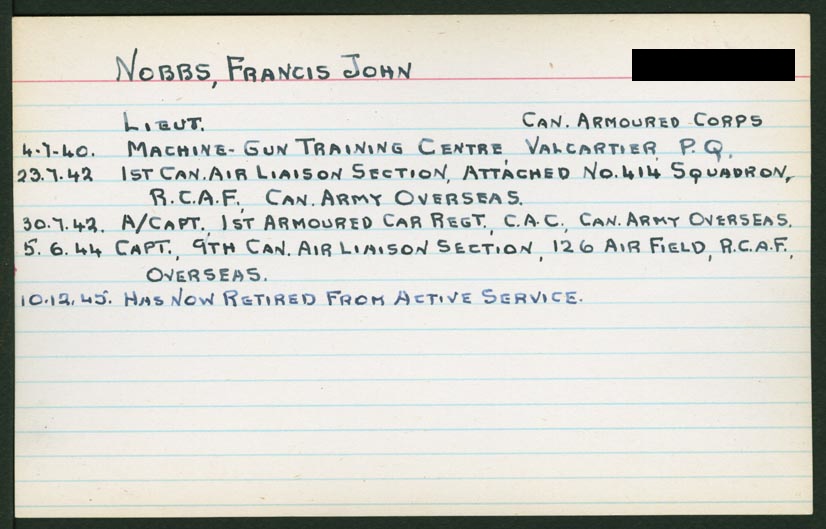 NOBBS, FRANCIS JOHN
LIEUT. CAN. ARMOURED CORPS
4.7.40. MACHINE-GUN TRAINING CENTRE, VALCARTIER, P.Q.
23.7.42 1ST CAN. AIR LIAISON SECTION, ATTACHED NO. 414 SQUADRON,
R.C.A.F., CAN. ARMY OVERSEAS.
30.7.42. A/CAPT., 1ST ARMOURED CAR REGT., C.A.C., CAN. ARMY OVERSEAS.
5.6.44 CAPT., 9TH CAN. AIR LIAISON SECTION, 126 AIR FIELD, R.C.A.F.,
OVERSEAS.
10.12.45. HAS NOW RETIRED FROM ACTIVE SERVICE.